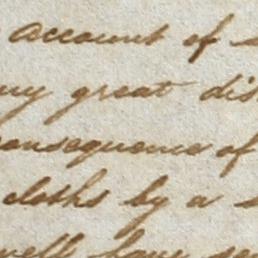 account of
my great dis
consequence of
cloths by a
well have